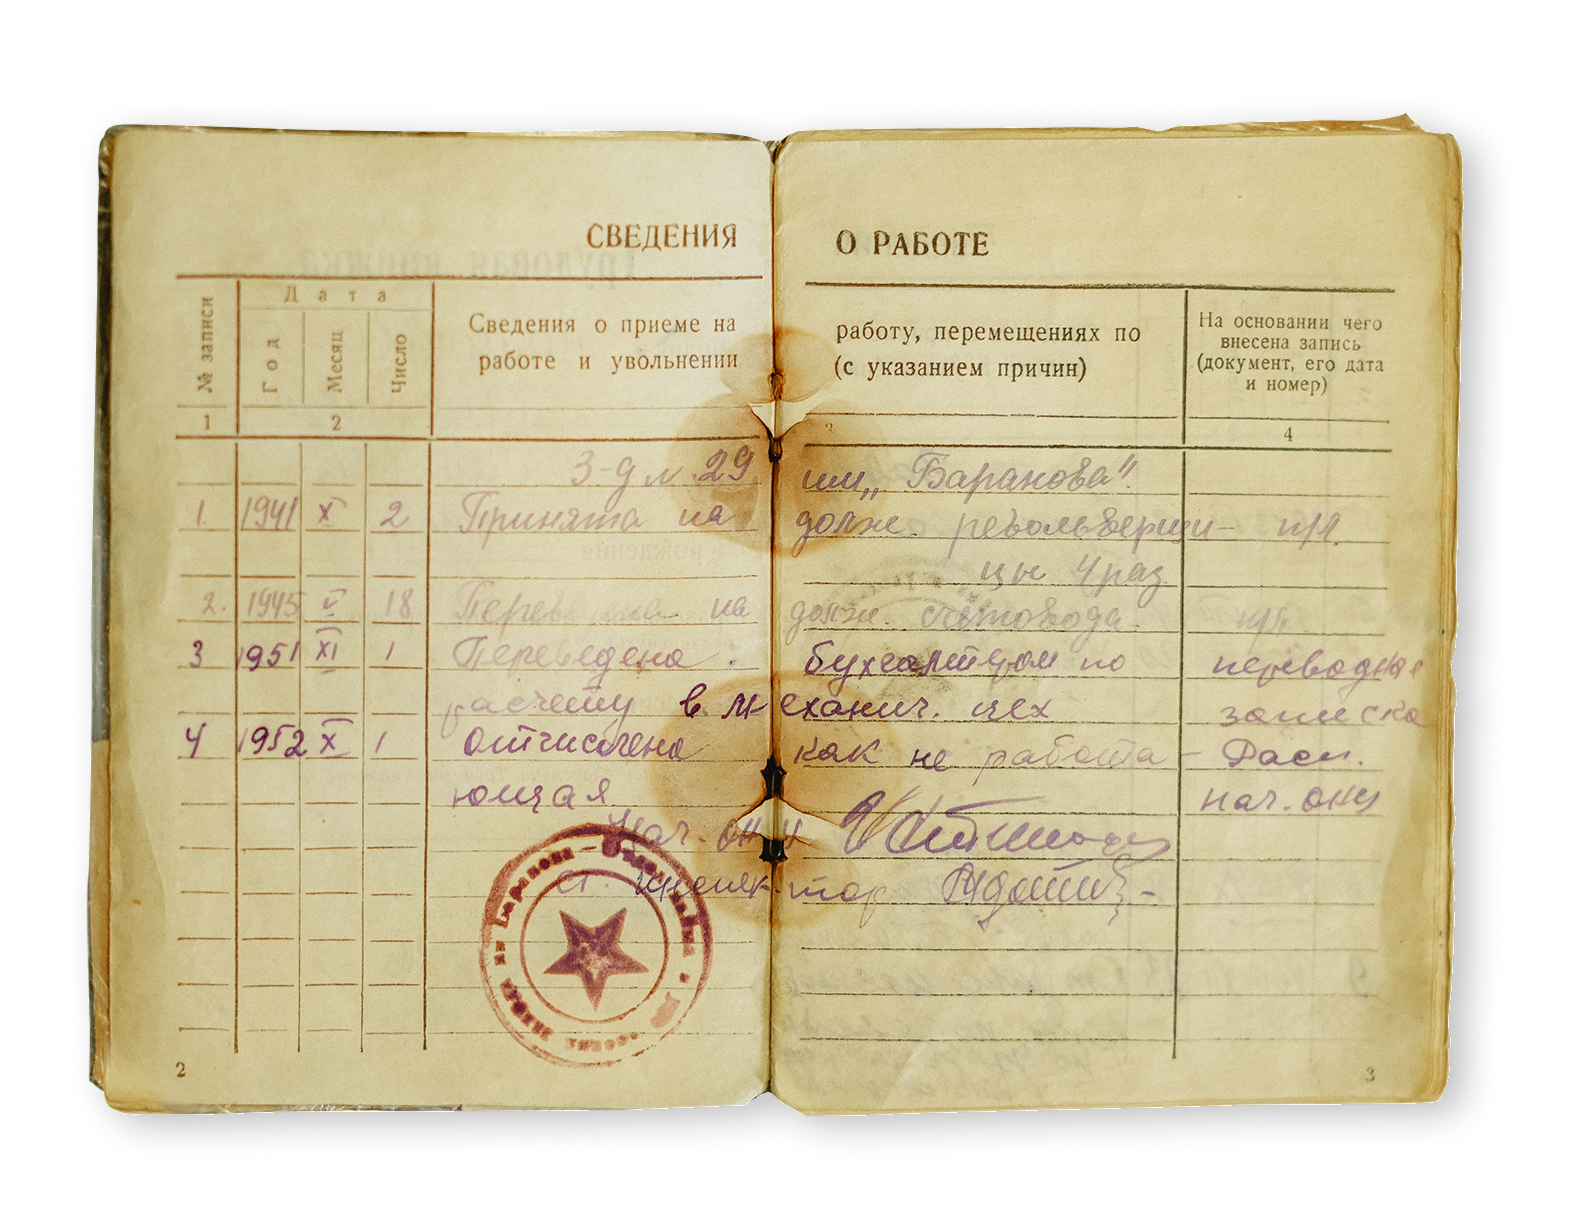 СВЕДЕНИЯ О РАБОТЕ
№ записи
Дата
Год
Месяц
Число
Сведения о приеме на работу, перемещениях по
работе и увольнении (с указанием причин)
На основании чего
внесена запись
(документ, его дата
и номер)
1 2 3 4
З-д № 29 им „Баранова"
1 1941 X 2 Принята на долж. револьверщи- пр.
цы 4 раз
2. 1945 V 18 Переведена на долж. счетовода пр.
3 1951 XI 1 Переведена бухгалтером по переводная
расчету в механич. цех записка
4 1952 X 1 отчислена как не работа- Расп.
ющая нач. ОНУ
Нач.
Ст. инспектор
2
3